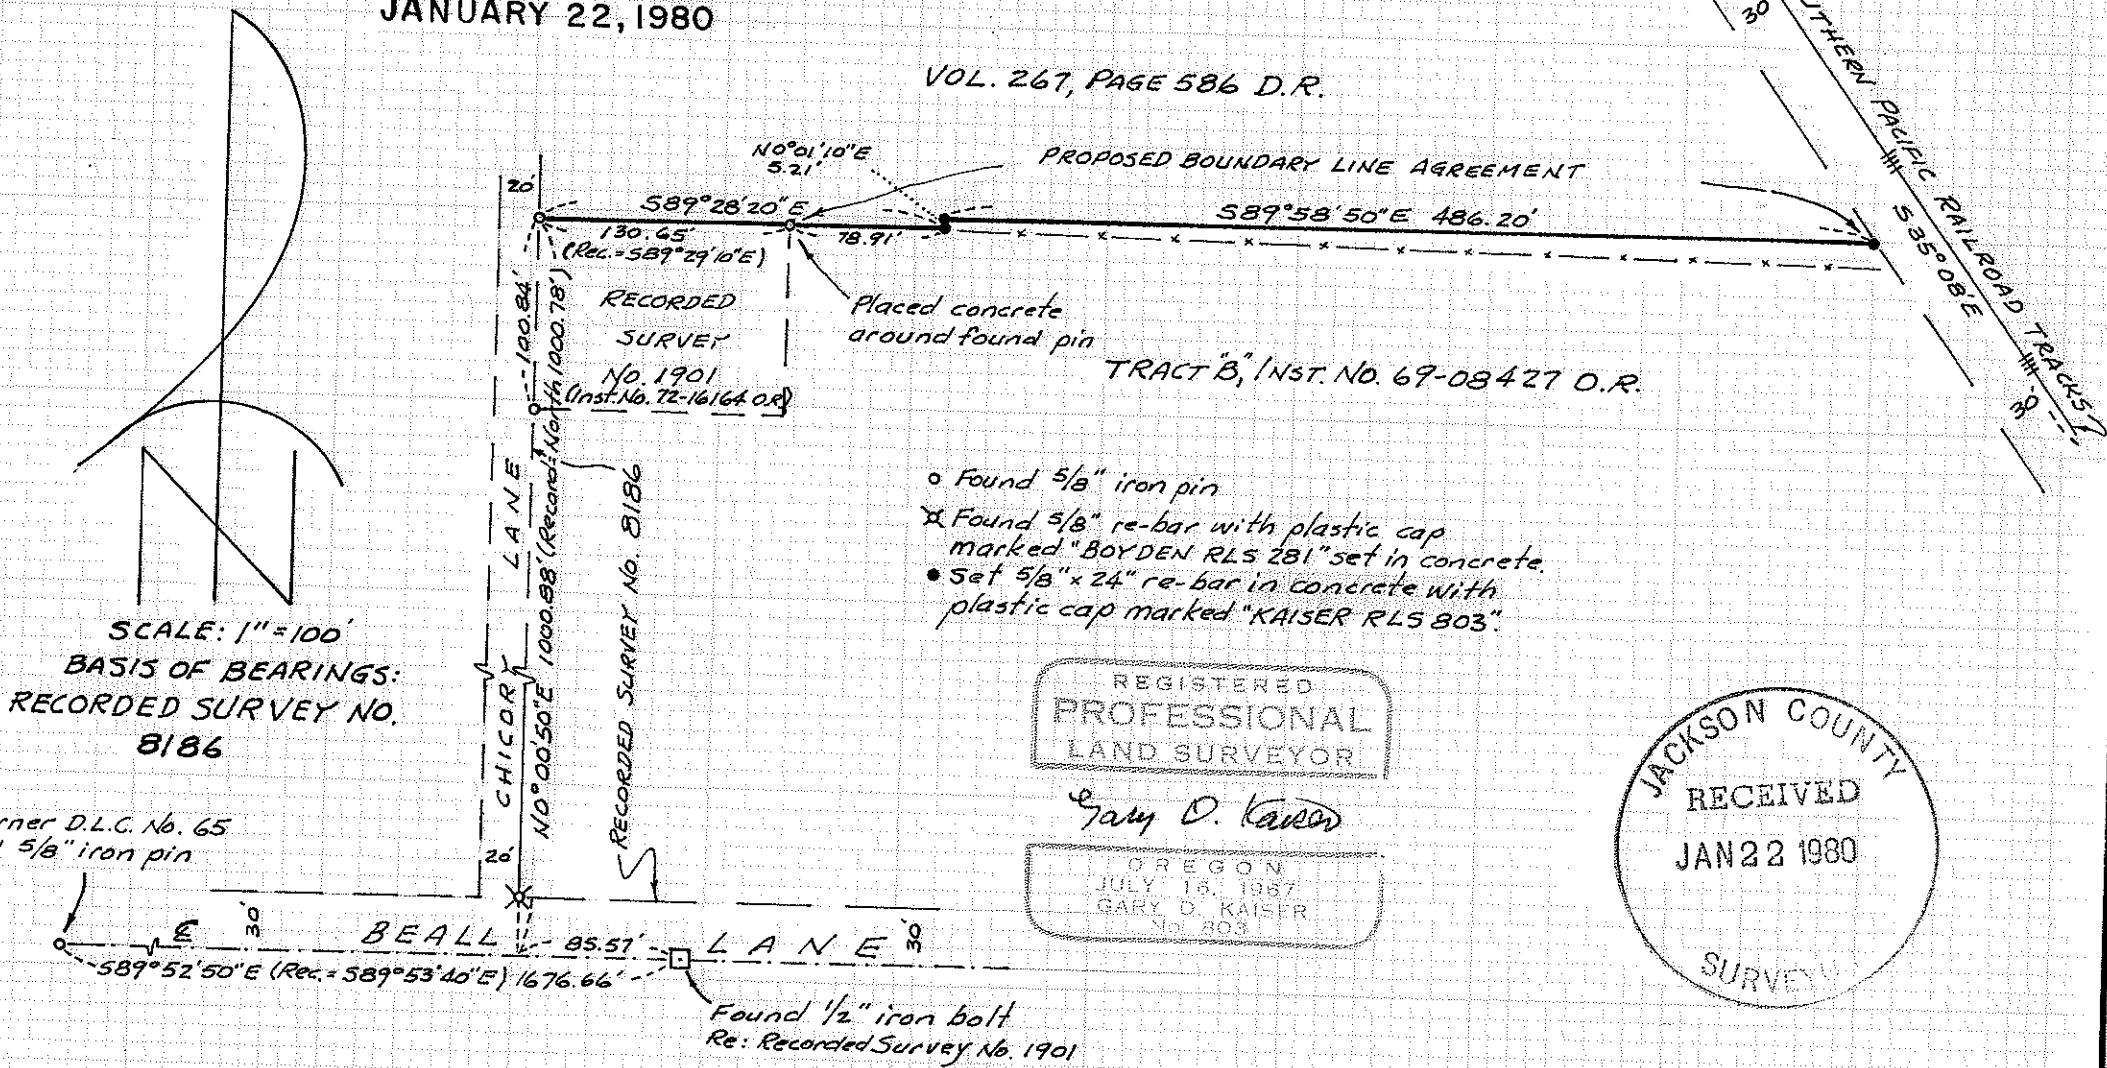 JANUARY 22, 1980
VOL. 267, PAGE 586 D.R.
30'
SOUTHERN PACIFIC RAILROAD TRACKS
S35°08'E
30'
N0°01'10"E
5.21'
PROPOSED BOUNDARY LINE AGREEMENT
20'
S89°28'20"E
130.65'
(Rec.=S89°29'10"E)
78.91'
S89°58'50"E 486.20'
100.84'
RECORDED
SURVEY
No. 1901
(Inst. No. 72-16164 O.R.)
Placed concrete
around found pin
TRACT "B", INST. No. 69-08427 O.R.
CHICORY LANE
N0°00'50"E 1000.88' (Record=North 1000.78')
RECORDED SURVEY No. 8186
20'
N
SCALE: 1"=100'
BASIS OF BEARINGS:
RECORDED SURVEY NO.
8186
Found 5/8" iron pin
Found 5/8" re-bar with plastic cap
marked "BOYDEN RLS 281" set in concrete.
Set 5/8" x 24" re-bar in concrete with
plastic cap marked "KAISER RLS 803".
REGISTERED
PROFESSIONAL
LAND SURVEYOR
Gary D. Kaiser
OREGON
JULY 16, 1967
GARY D. KAISER
No. 803
JACKSON COUNTY
RECEIVED
JAN 22 1980
SURVEYOR
rner D.L.C. No. 65
5/8" iron pin
℄
30'
BEALL LANE
85.57'
30'
S89°52'50"E (Rec.=S89°53'40"E) 1676.66'
Found 1/2" iron bolt
Re: Recorded Survey No. 1901